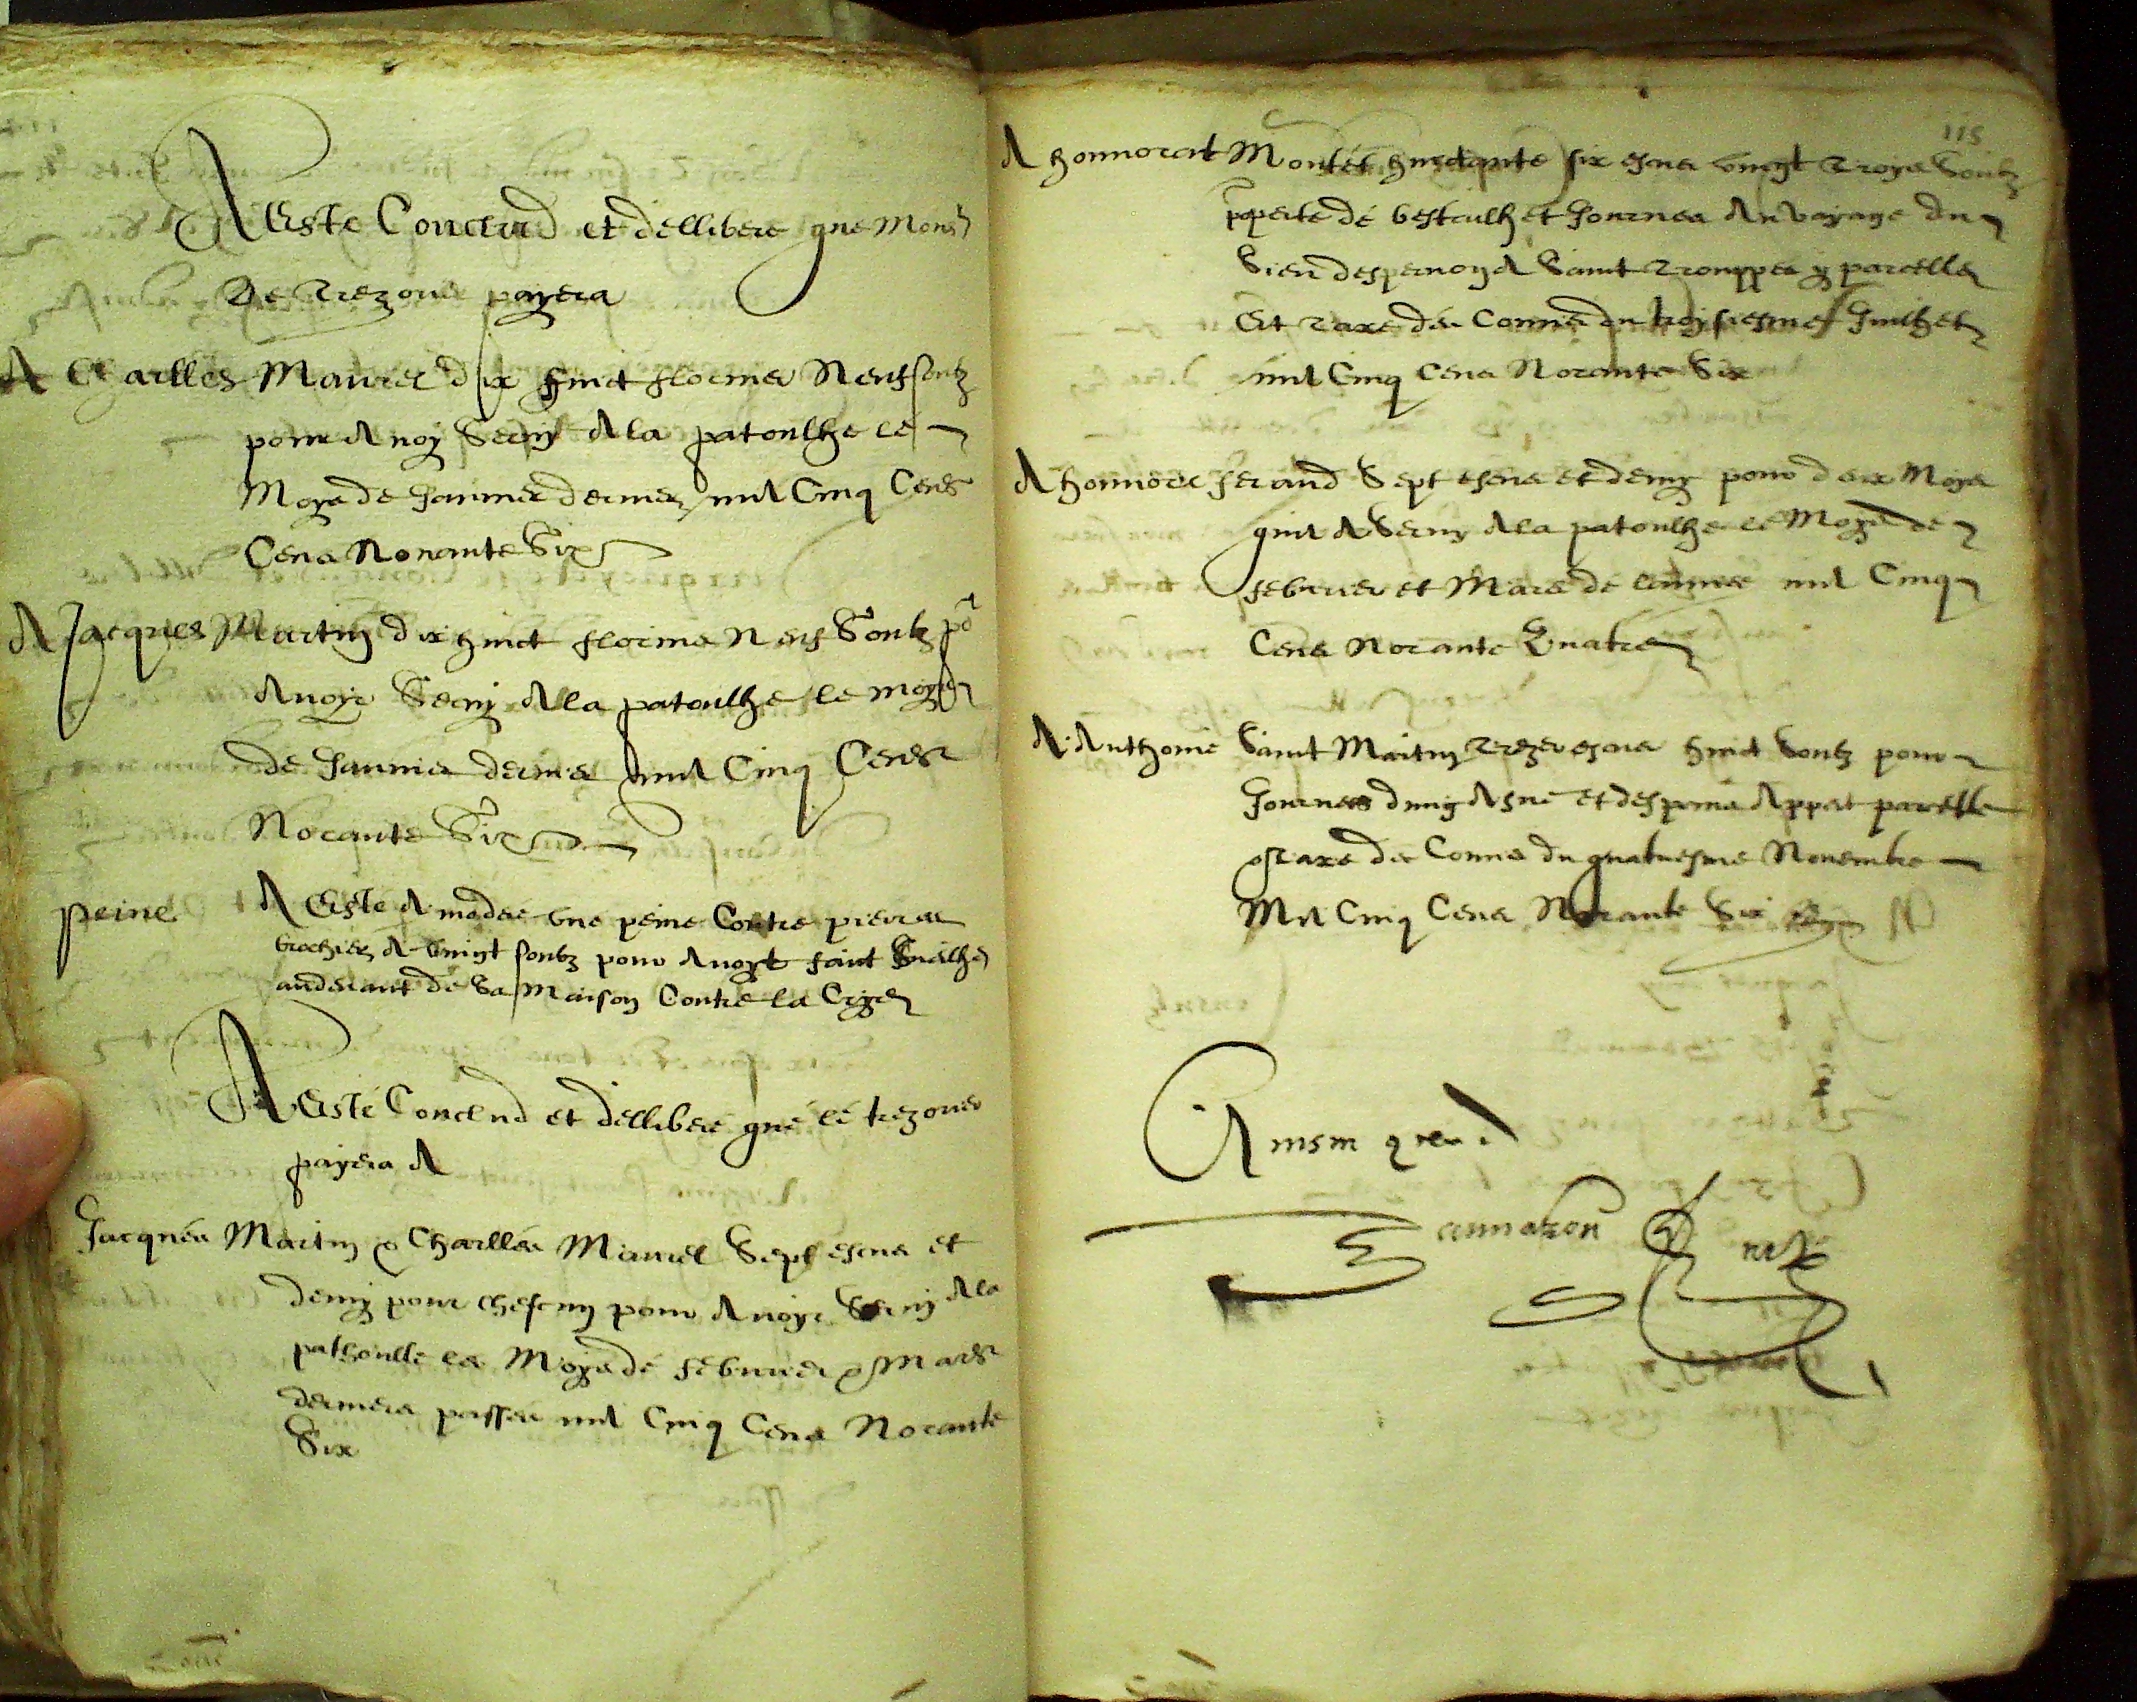 A Esté Conclud et dellibere que Monsr
De Trezorier payera
A Charlles Maurel dix huict florins Neuf soulz
pour Avoyr Servy A la patoulhe le
Moys de Janvier dernier mil Cinq Cens
Cens Nonante Six
A Jacques Martin dix huict florins Neuf Soulz po
Avoyr Servy A la patoulhe le Moys
de Janvier dernier mil Cinq Cens
Novante Six
peine
A Esté A modéré une peine Contre pierre
brochier A vingt soulz pour Avoyr faict
audevant de Sa Maison Contre la Crye
A Esté Conclud et dellibere que le trezorier
payera A
Jacques Martin & Charlles Maurel Sept escus et
demy pour chescun pour Avoyr Servy A la
pathoulle les Moys de febvrier & Mars
derniers passés mil Cinq Cens Novante
Six
115
A honnorat Montet six escus vingt Troys Soulz
de et Journes Au voyage du
Sieur despernoy A Sainct Troppes y parcelle
Et Taxe des Comis du troysiesme Juilhet
mil Cinq Cens Novante Six
A honnoré feraud Sept escus et demy pour deux Moys
quil A Servy A la patoulhe le Moys de
febvrier et Mars de lannee mil Cinq
Cens Novante Quatre
A Anthoine Sainct Martin Treze escus huict Soulz pour
Journees dung Asne et despens Appert parcelle
& taxe des Comis du quatriesme Novembre
Mil Cinq Cens Novante Six
Ainsin que